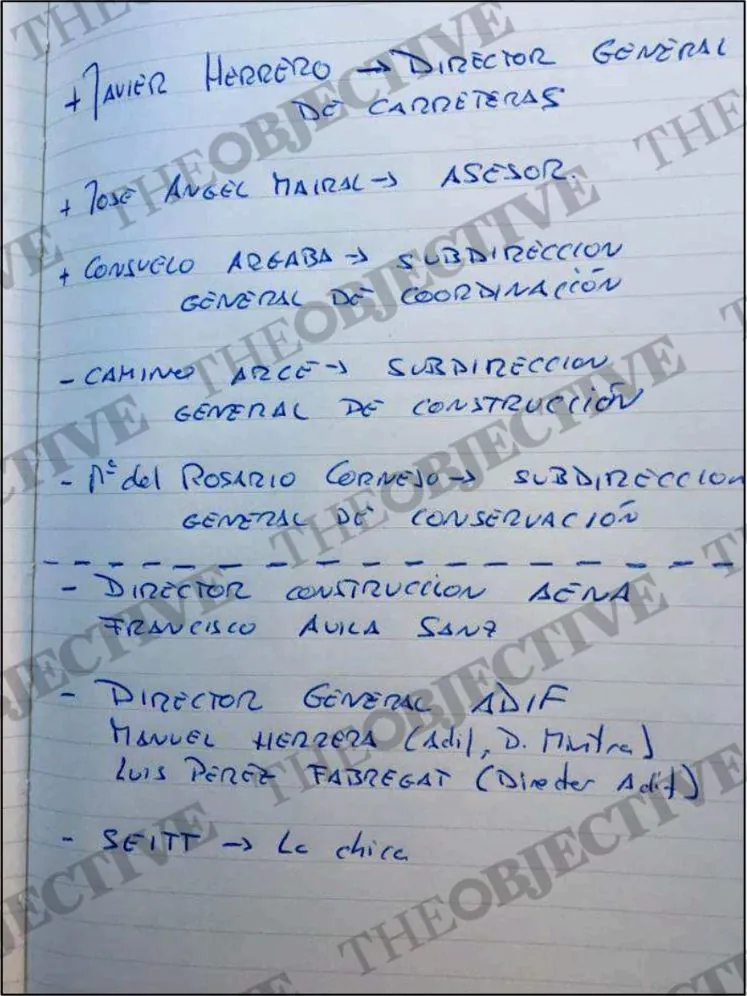 + JAVIER HERRERO → DIRECTOR GENERAL
DE CARRETERAS
+ JOSE ANGEL MAIRAL → ASESOR.
+ CONSUELO ARGABA → SUBDIRECCION
GENERAL DE COORDINACIÓN
- CAMINO ARCE → SUBDIRECCION
GENERAL DE CONSTRUCCIÓN
- Mª del ROSARIO CORNEJO → SUBDIRECCION
GENERAL DE CONSERVACIÓN
- DIRECTOR CONSTRUCCION AENA
FRANCISCO AVILA SANZ
- DIRECTOR GENERAL ADIF
MANUEL HERRERA (Adif, D. Mintra)
LUIS PEREZ FABREGAT (Director Adif)
- SEITT → La chica
THEOBJECTIVE